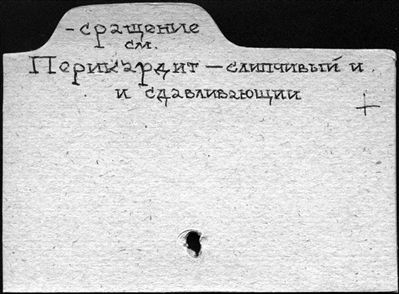 -сращение
см.
Перикардит — слипчивый и
и сдавливающии
+